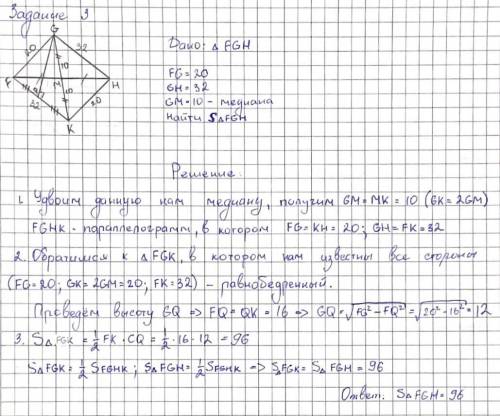 Задание 3
G
20
32
10
F
M
H
10
32
20
K
Дано: △ FGH
FG = 20
GH = 32
GM = 10 - медиана
Найти S△FGH
Решение:
1. Удвоим данную нам медиану, получим GM = MK = 10 (GK = 2GM)
FGHK - параллелограмм, в котором FG = KH = 20; GH = FK = 32
2. Обратимся к △ FGK, в котором нам известны все стороны
(FG = 20; GK = 2GM = 20; FK = 32) - равнобедренный.
Проведём высоту GQ => FQ = QK = 16 => GQ = √FG² - FQ² = √20² - 16² = 12
3. S△FGK = 1/2 FK · CQ = 1/2 · 16 · 12 = 96
S△FGK = 1/2 SFGHK ; S△FGH = 1/2 SFGHK => S△FGK = S△FGH = 96
Ответ: S△FGH = 96